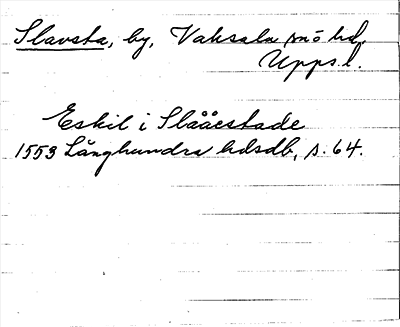 Slavsta, by, Vaksala sn o hd,
Upps. l.
Eskil i Slååestade
1553 Långhundra hdsdb, s. 64.